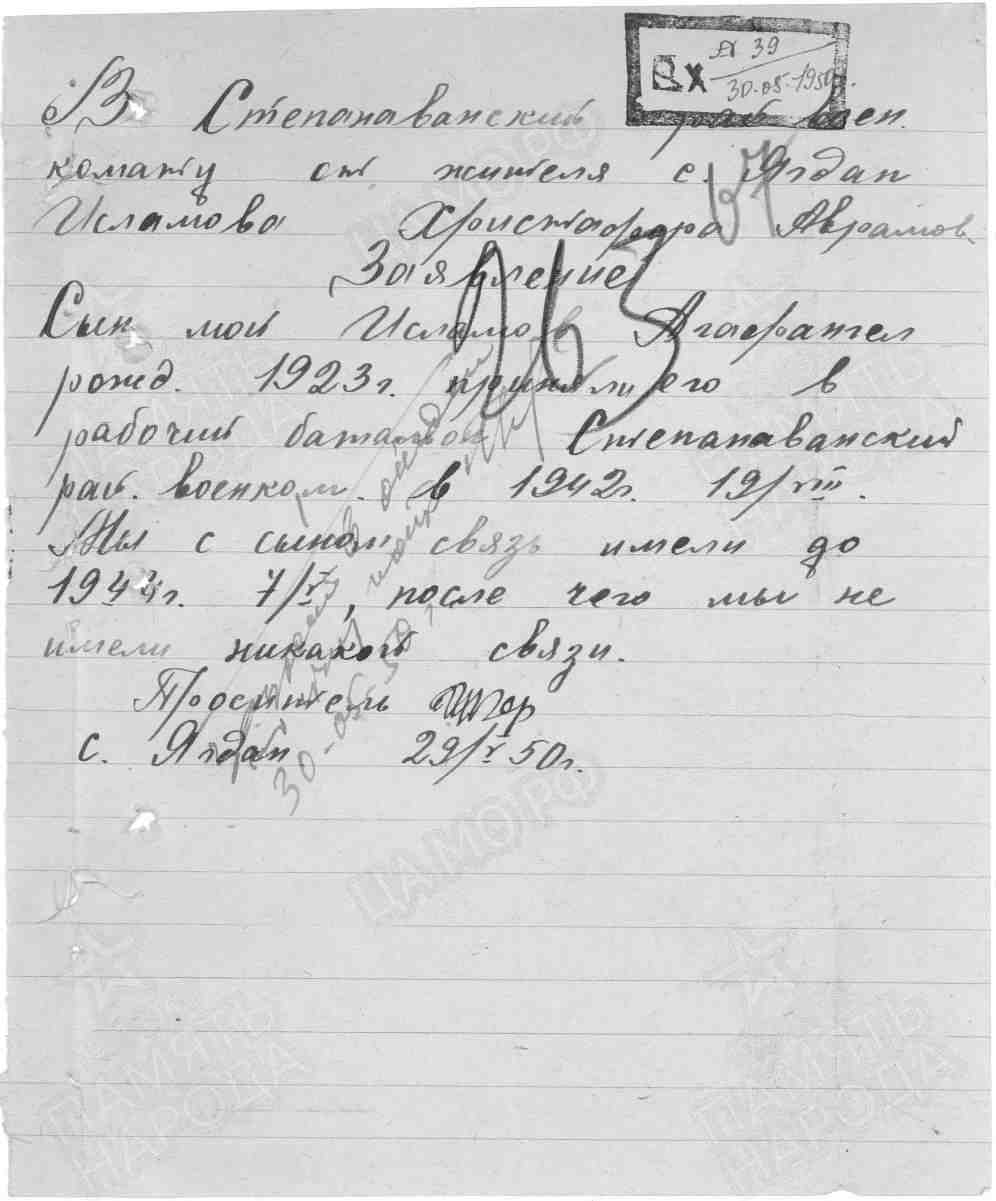 Вх № 39
30-05-1950г.
В Степанаванский рай воен.
команту от жителя с. Ягдан
Исламова Христафора Аврамов.
Заявление
Сын мой Исламов Агафангел
рожд. 1923г. приняли его в
рабочий баталион Степанаванский
рай. военком. в 1942г. 19/VIII.
Мы с сыном связь имели до
1943г. 7/V, после чего мы не
имели никакой связи.
Проситель
с. Ягдан 29/V 50г.
30-05-50
963
ЦАМО РФ
ПАМЯТЬ
НАРОДА
ПАМЯТЬ
НАРОДА
ЦАМО РФ
ПАМЯТЬ
НАРОДА
ПАМЯТЬ
НАРОДА